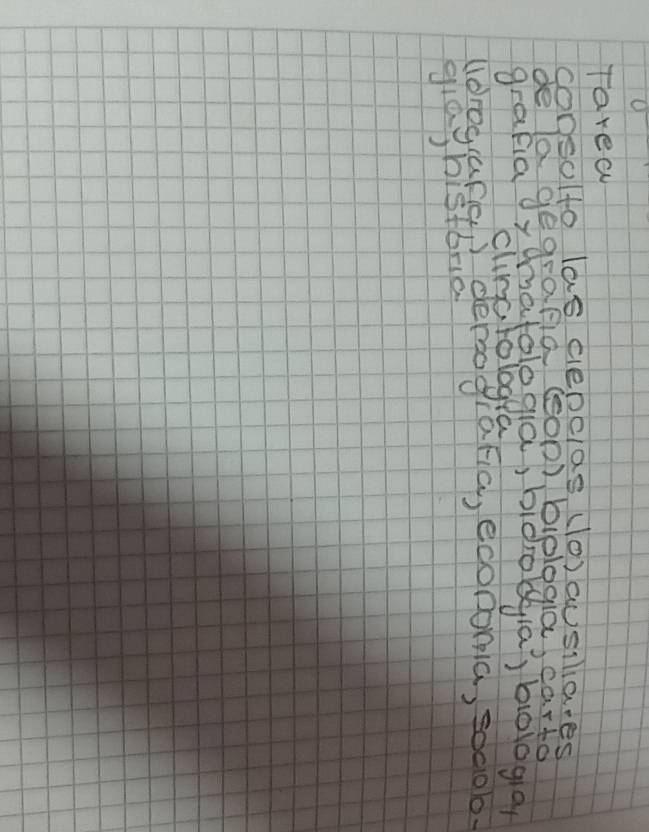 Tarea
consulto las ciencias (10) ausiliares
de la gegrafia (son) biología, carto
grafia y
climatologia
hidrografia, demografia, economia, sociolo-
gia, historia